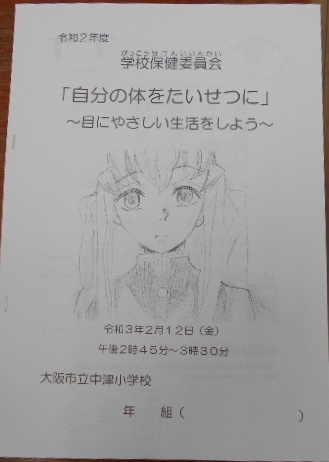 令和2年度
がっこうほけんいいんかい
学校保健委員会
「自分の体をたいせつに」
～目にやさしい生活をしよう～
令和3年2月12日（金）
午後2時45分～3時30分
大阪市立中津小学校
年　組（　　　　　　　）